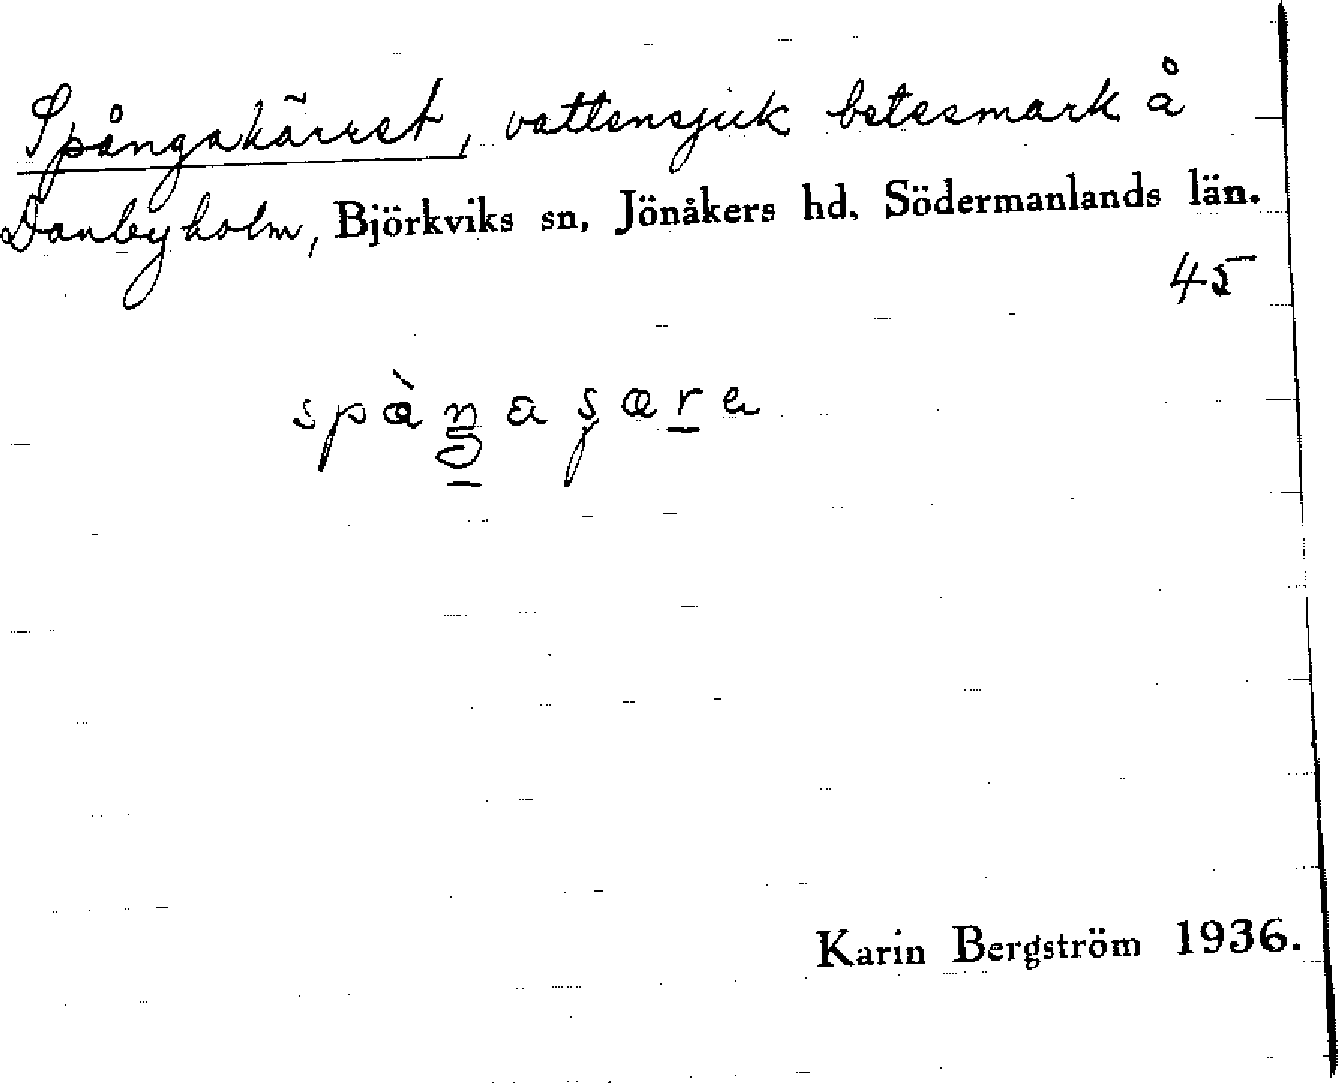 Spångakärret, vattensjuk betesmark å
Danbyholm, Björkviks sn, Jönåkers hd, Södermanlands län.
45
Karin Bergström 1936.